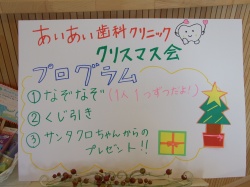 あいあい歯科クリニック
クリスマス会
プログラム
① なぞなぞ (1人1つずつだよ!)
② くじ引き
③ サンタクロちゃんからの
プレゼント!!